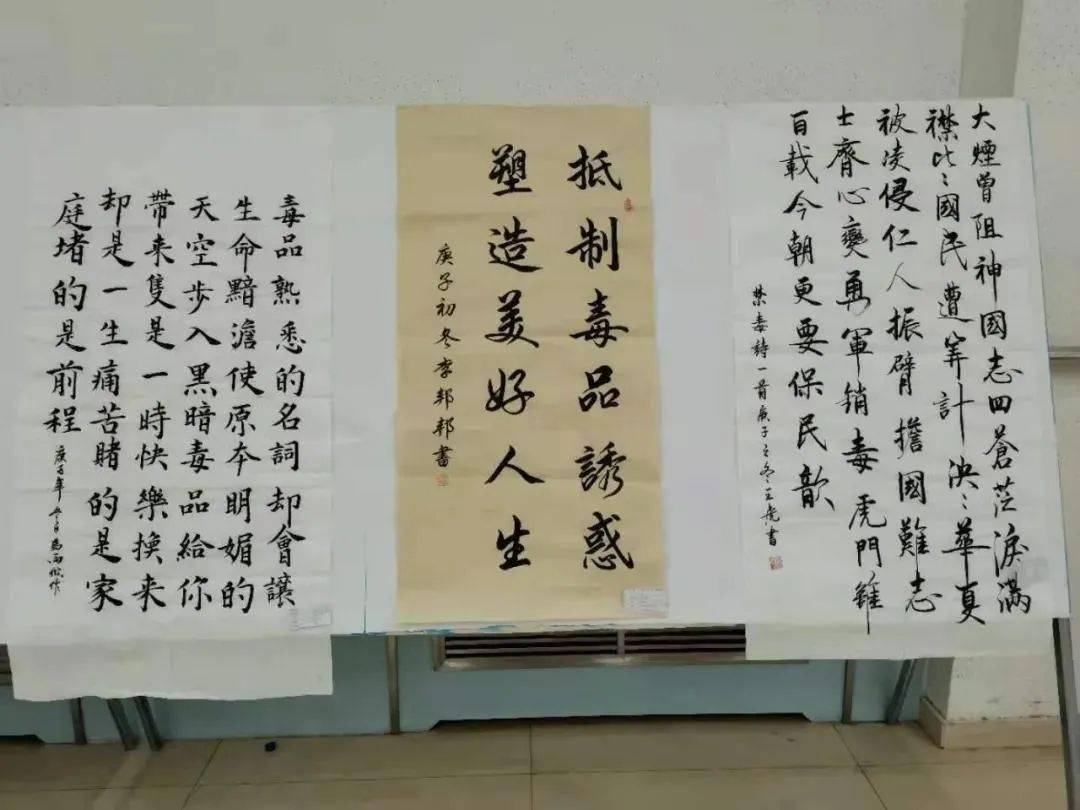 大煙曾阻神國志四蒼茫淚滿
襟比々國民遭算計泱々華夏
被凌侵仁人振臂擔國難志
士齊心勇軍銷毒虎門雖
百載今朝更要保民歆
禁毒詩一首庚子之冬王虎書
抵制毒品誘惑
塑造美好人生
庚子初冬李邦邦書
毒品熟悉的名詞却會讓
生命黯澹使原本明媚的
天空步入黑暗毒品給你
帶来隻是一時快樂換来
却是一生痛苦賭的是家
庭堵的是前程
庚子年冬月